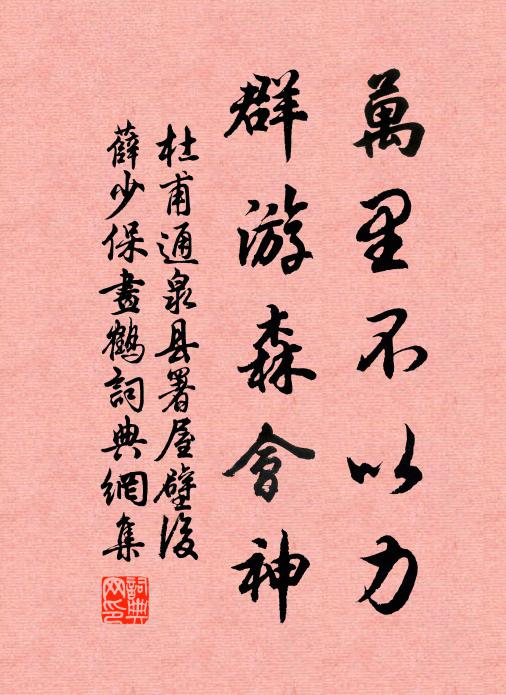 萬里不以力
群游森會神
杜甫通泉县署屋壁後
薛少保畫鶴詞典網集
詞典网印